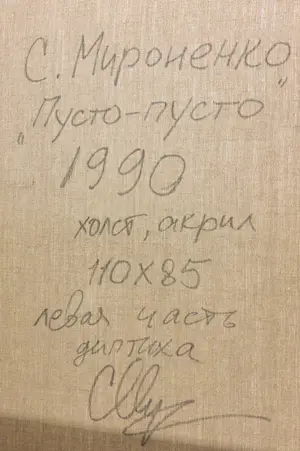 С. Мироненко
"Пусто-пусто"
1990
холст, акрил
110x85
левая часть
диптиха